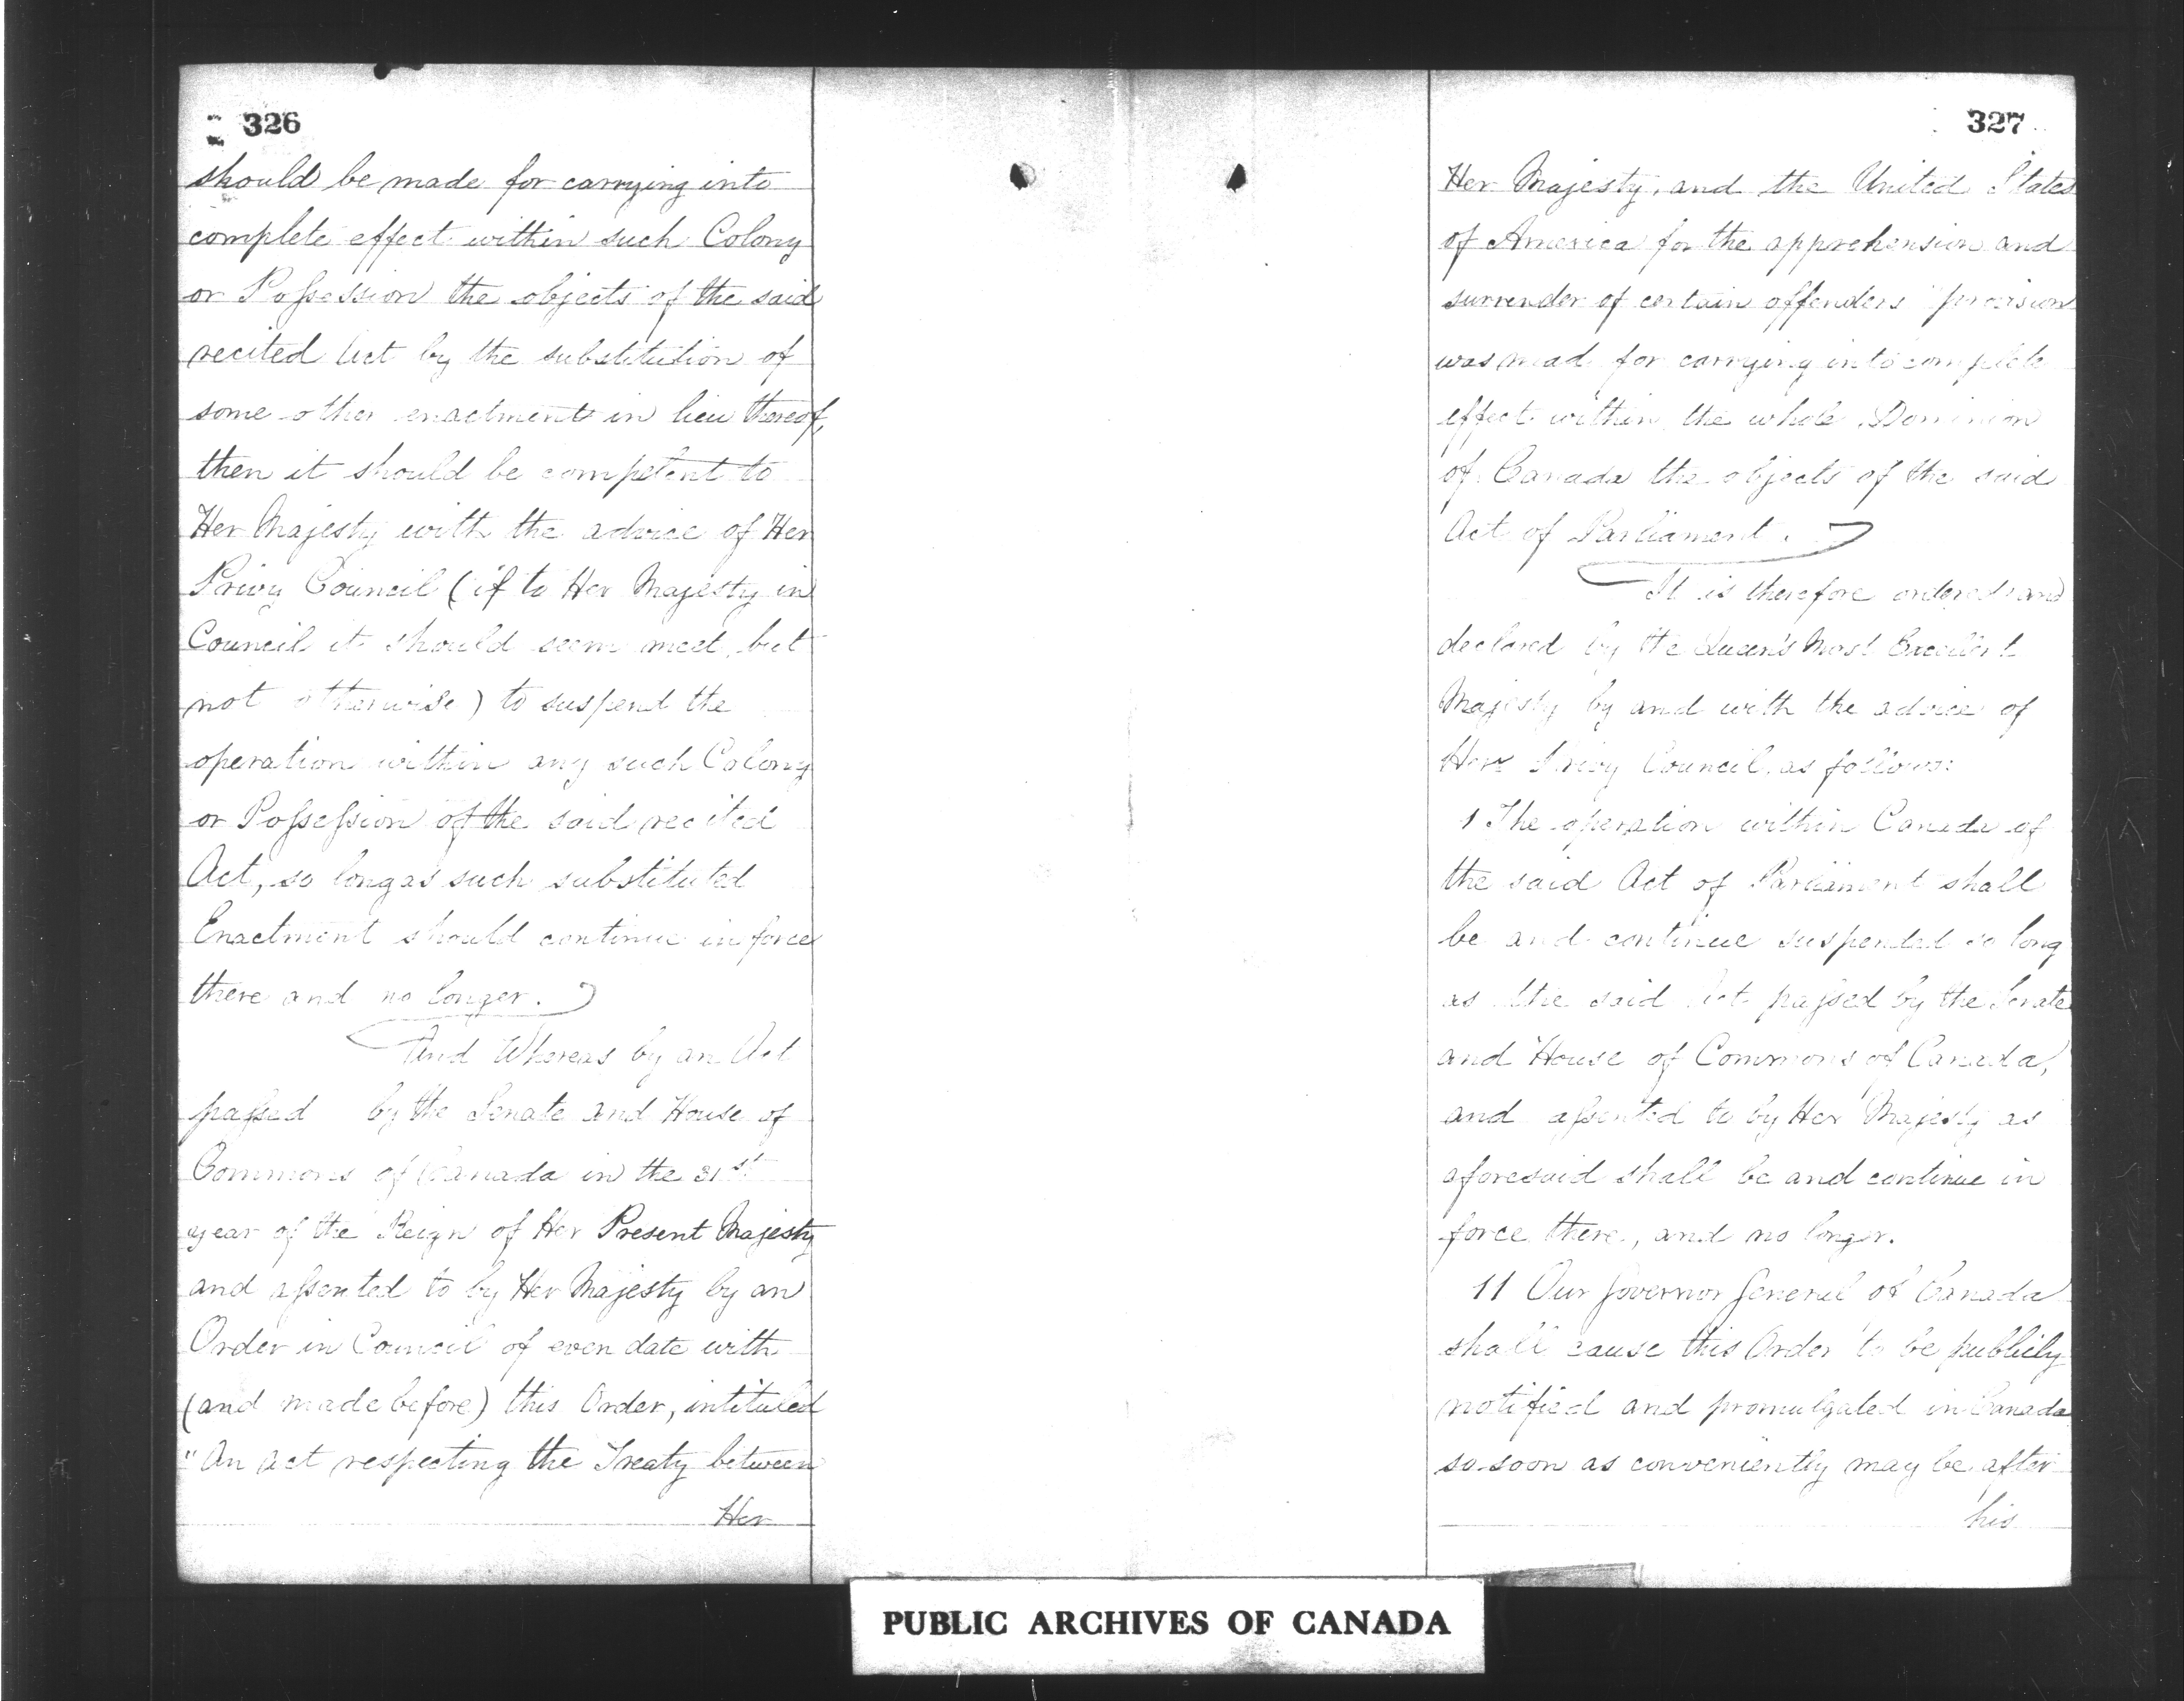 326
should be made for carrying into
complete effect within such Colony
or Possession the objects of the said
recited Act by the substitution of
some other enactment in lieu thereof,
then it should be competent to
Her Majesty with the advice of Her
Privy Council (if to Her Majesty in
Council it should seem meet, but
not otherwise) to suspend the
operation within any such Colony
or Possession of the said recited
Act, so long as such substituted
Enactment should continue in force
there and no longer.
And Whereas by an Act
passed by the Senate and House of
Commons of Canada in the 31st
year of the Reign of Her Present Majesty
and assented to by Her Majesty by an
Order in Council of even date with
(and made before) this Order, intituled
"An act respecting the Treaty between
Her
327
Her Majesty, and the United States
of America for the apprehension and
surrender of certain offenders" provision
was mad for carrying into complete
effect within the whole Dominion
of Canada the objects of the said
Act of Parliament.
It is therefore ordered and
declared by the Queen's Most Excellent
Majesty by and with the advice of
Her Privy Council, as follows:
1 The operation within Canada of
the said Act of Parliament shall
be and continue suspended so long
as the said Act passed by the Senate
and House of Commons of Canada,
and assented to by Her Majesty as
aforesaid shall be and continue in
force there, and no longer.
11 Our Governor General of Canada
shall cause this Order to be publicly
notified and promulgated in Canada
so soon as conveniently may be after
his
PUBLIC ARCHIVES OF CANADA